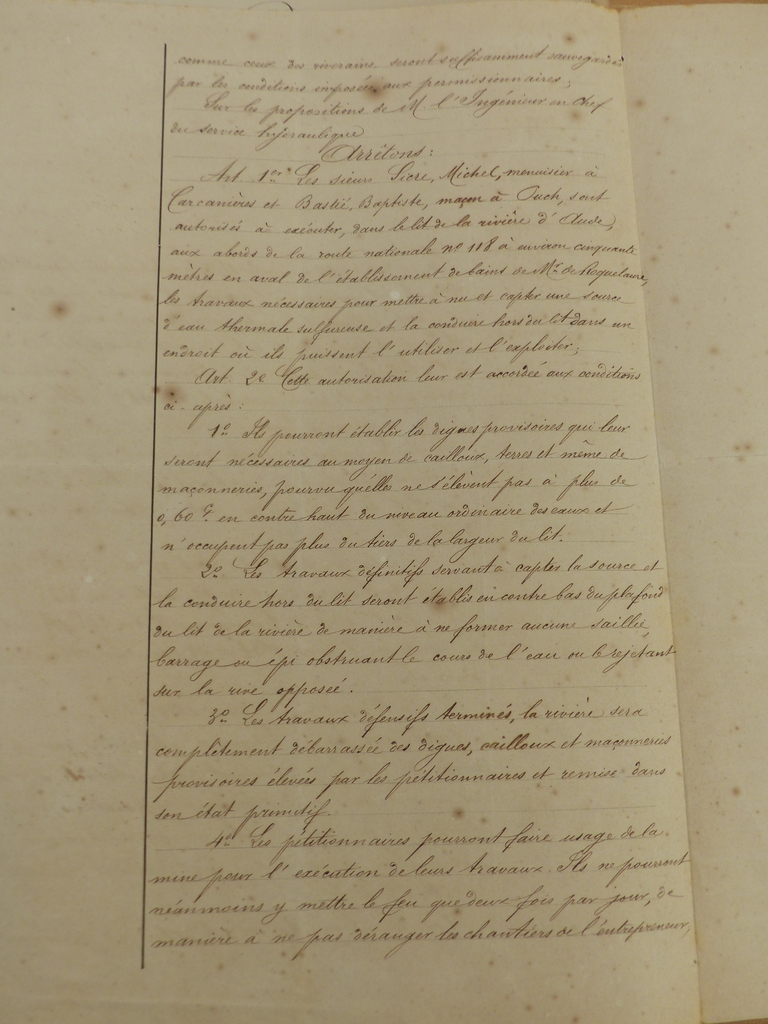 comme ceux des riverains seront suffisamment sauvegardés
par les conditions imposées aux permissionnaires;
Sur les propositions de M l'Ingénieur en Chef
du service hydraulique
Arrêtons:
Art 1er Les sieurs Sicre, Michel, menuisier à
Carcanières et Bastié, Baptiste, maçon à Ouch, sont
autorisés à exécuter, dans le lit de la rivière d'Aude,
aux abords de la route nationale no 118 à environ cinquante
mètres en aval de l'établissement de bains de Mr de Roquelaure,
les travaux nécessaires pour mettre à nu et capter une source
d'eau thermale sulfureuse et la conduire hors du lit dans un
endroit où ils puissent l'utiliser et l'exploiter;
Art. 2e Cette autorisation leur est accordée aux conditions
ci-après:
1o Ils pourront établir les digues provisoires qui leur
seront nécessaires au moyen de cailloux, terres et même de
maçonneries, pourvu qu'elles ne s'élèvent pas à plus de
0,60 c. en contre haut du niveau ordinaire des eaux et
n'occupent pas plus du tiers de la largeur du lit.
2o Les travaux définitifs servant à capter la source et
la conduire hors du lit seront établis en contre bas du plafond
du lit de la rivière de manière à ne former aucune saillie
barrage ou épi obstruant le cours de l'eau ou le rejetant
sur la rive opposée.
3o Les travaux défensifs terminés, la rivière sera
complètement débarrassée des digues, cailloux et maçonneries
provisoires élevées par les pétitionnaires et remise dans
son état primitif.
4o Les pétitionnaires pourront faire usage de la
mine pour l'exécution de leurs travaux. Ils ne pourront
néanmoins y mettre le feu que deux fois par jour, de
manière à ne pas déranger les chantiers de l'entrepreneur,